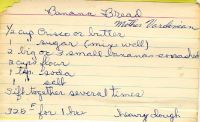 Banana Bread
Mother Nordeman
1/2 cup Crisco or butter
sugar (mix well)
2 big or 3 small bananas smashed
2 cups flour
1 tsp soda
salt
Sift together several times
325° F for 1 hr heavy dough